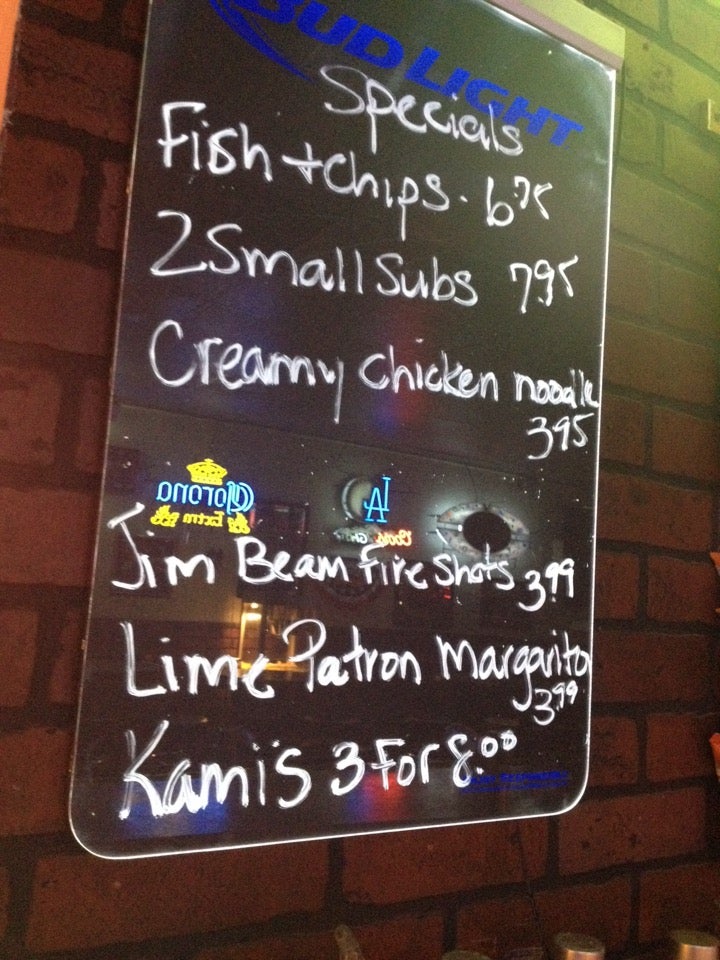 BUD LIGHT
Specials
Fish + Chips. 6.75
2 Small Subs 7.95
Creamy Chicken noodle
3.95
Corona
Extra
LA
Coors
Jim Beam fire shots 3.99
Lime Patron Margarita
3.99
Kami's 3 For 8.00